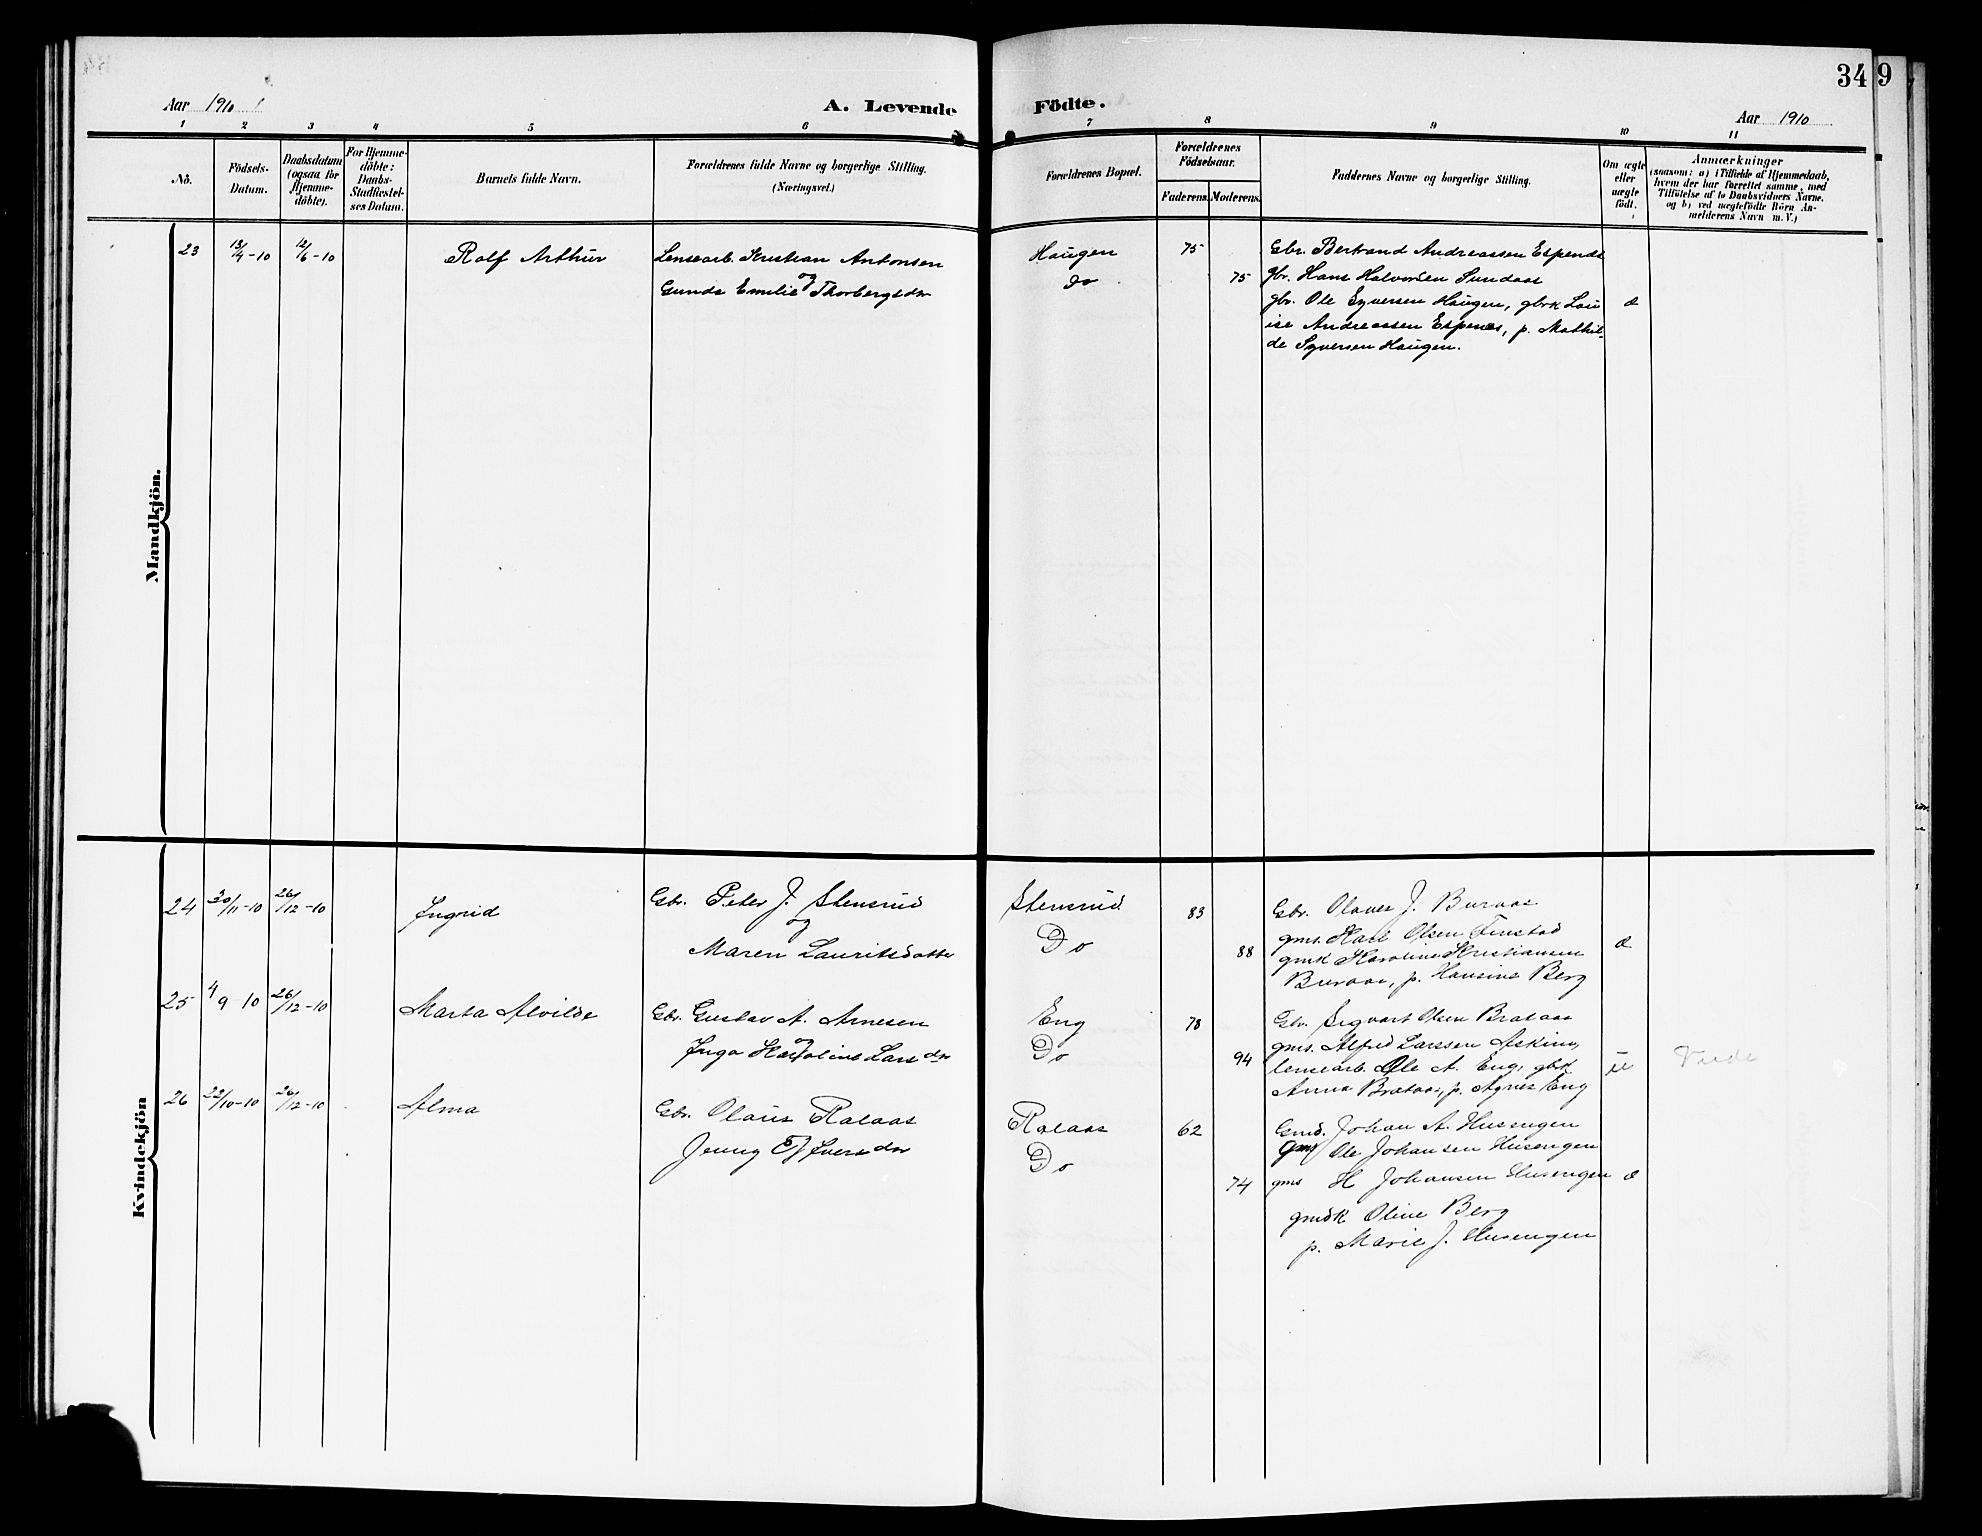 Aar 1910
A. Levende
Födte.
34
9
Aar 1910
1 2 3 4 5 6 7 8 9 10 11
No.
Födsels-
Datum.
Daabsdatum
(ogsaa for
Hjemme-
döbte).
For Hjemme-
döbte:
Daabs-
Stadfæstel-
ses Datum.
Barnets fulde Navn.
Forældrenes fulde Navne og borgerlige Stilling.
(Næringsvei.)
Forældrenes Bopæl.
Forældrenes
Födselsaar.
Faderens. Moderens.
Faddernes Navne og borgerlige Stilling.
Om ægte
eller
uægte
födt.
Anmærkninger
(saasom: a) i Tilfælde af Hjemmedaab,
hvem der har forrettet samme, med
Tilföielse af to Daabsvidners Navne.
og b) ved uægtefödte Börn An-
melderens Navn m. V.)
Mandkjön.
23 13/4-10 12/6-10 Rolf Arthur Lensearb. Kristian Antonsen
og
Gunda Emilie Thorbergsdr
Haugen 75
Do 75
Gbr. Bertrand Andreassen Espenes
gbr. Hans Halvorsen Sundaas
gbr. Ole Syversen Haugen, gbrk Lou
ise Andreassen Espenes, p. Mathil-
de Syversen Haugen.
æ
Kvindekjön
24 30/11-10 26/12-10 Ingrid Gbr. Peter J. Stensrud
og
Maren Lauritsdatter
Stensrud 83
Do 88
Gbr. Olaves J. Buraas
gms. Karl Olsen Finstad
gmk Karoline Kristiansen
Buraas, p. Hansine Berg
æ
25 4/9-10 26/12-10 Marta Alvilde Gbr. Gustav A. Arnesen
og
Inga Karoline Larsdr
Eng 78
Do 94
Gbr. Sigvart Olsen Brataas
gms. Alfred Larssen Asking
lensearb. Ole A. Eng, gbk
Anna Brataas, p. Agnes Eng
u
26 22/10-10 26/12-10 Alma Gbr. Olaus Ralaas
og
Jenny Iversdr
Ralaas 62
Do 74
Gmd. Johan A. Husengen
gms Ole Johansen Husengen
gms H Johansen Husengen
gmdk Oline Berg
p. Marie J. Husengen
æ